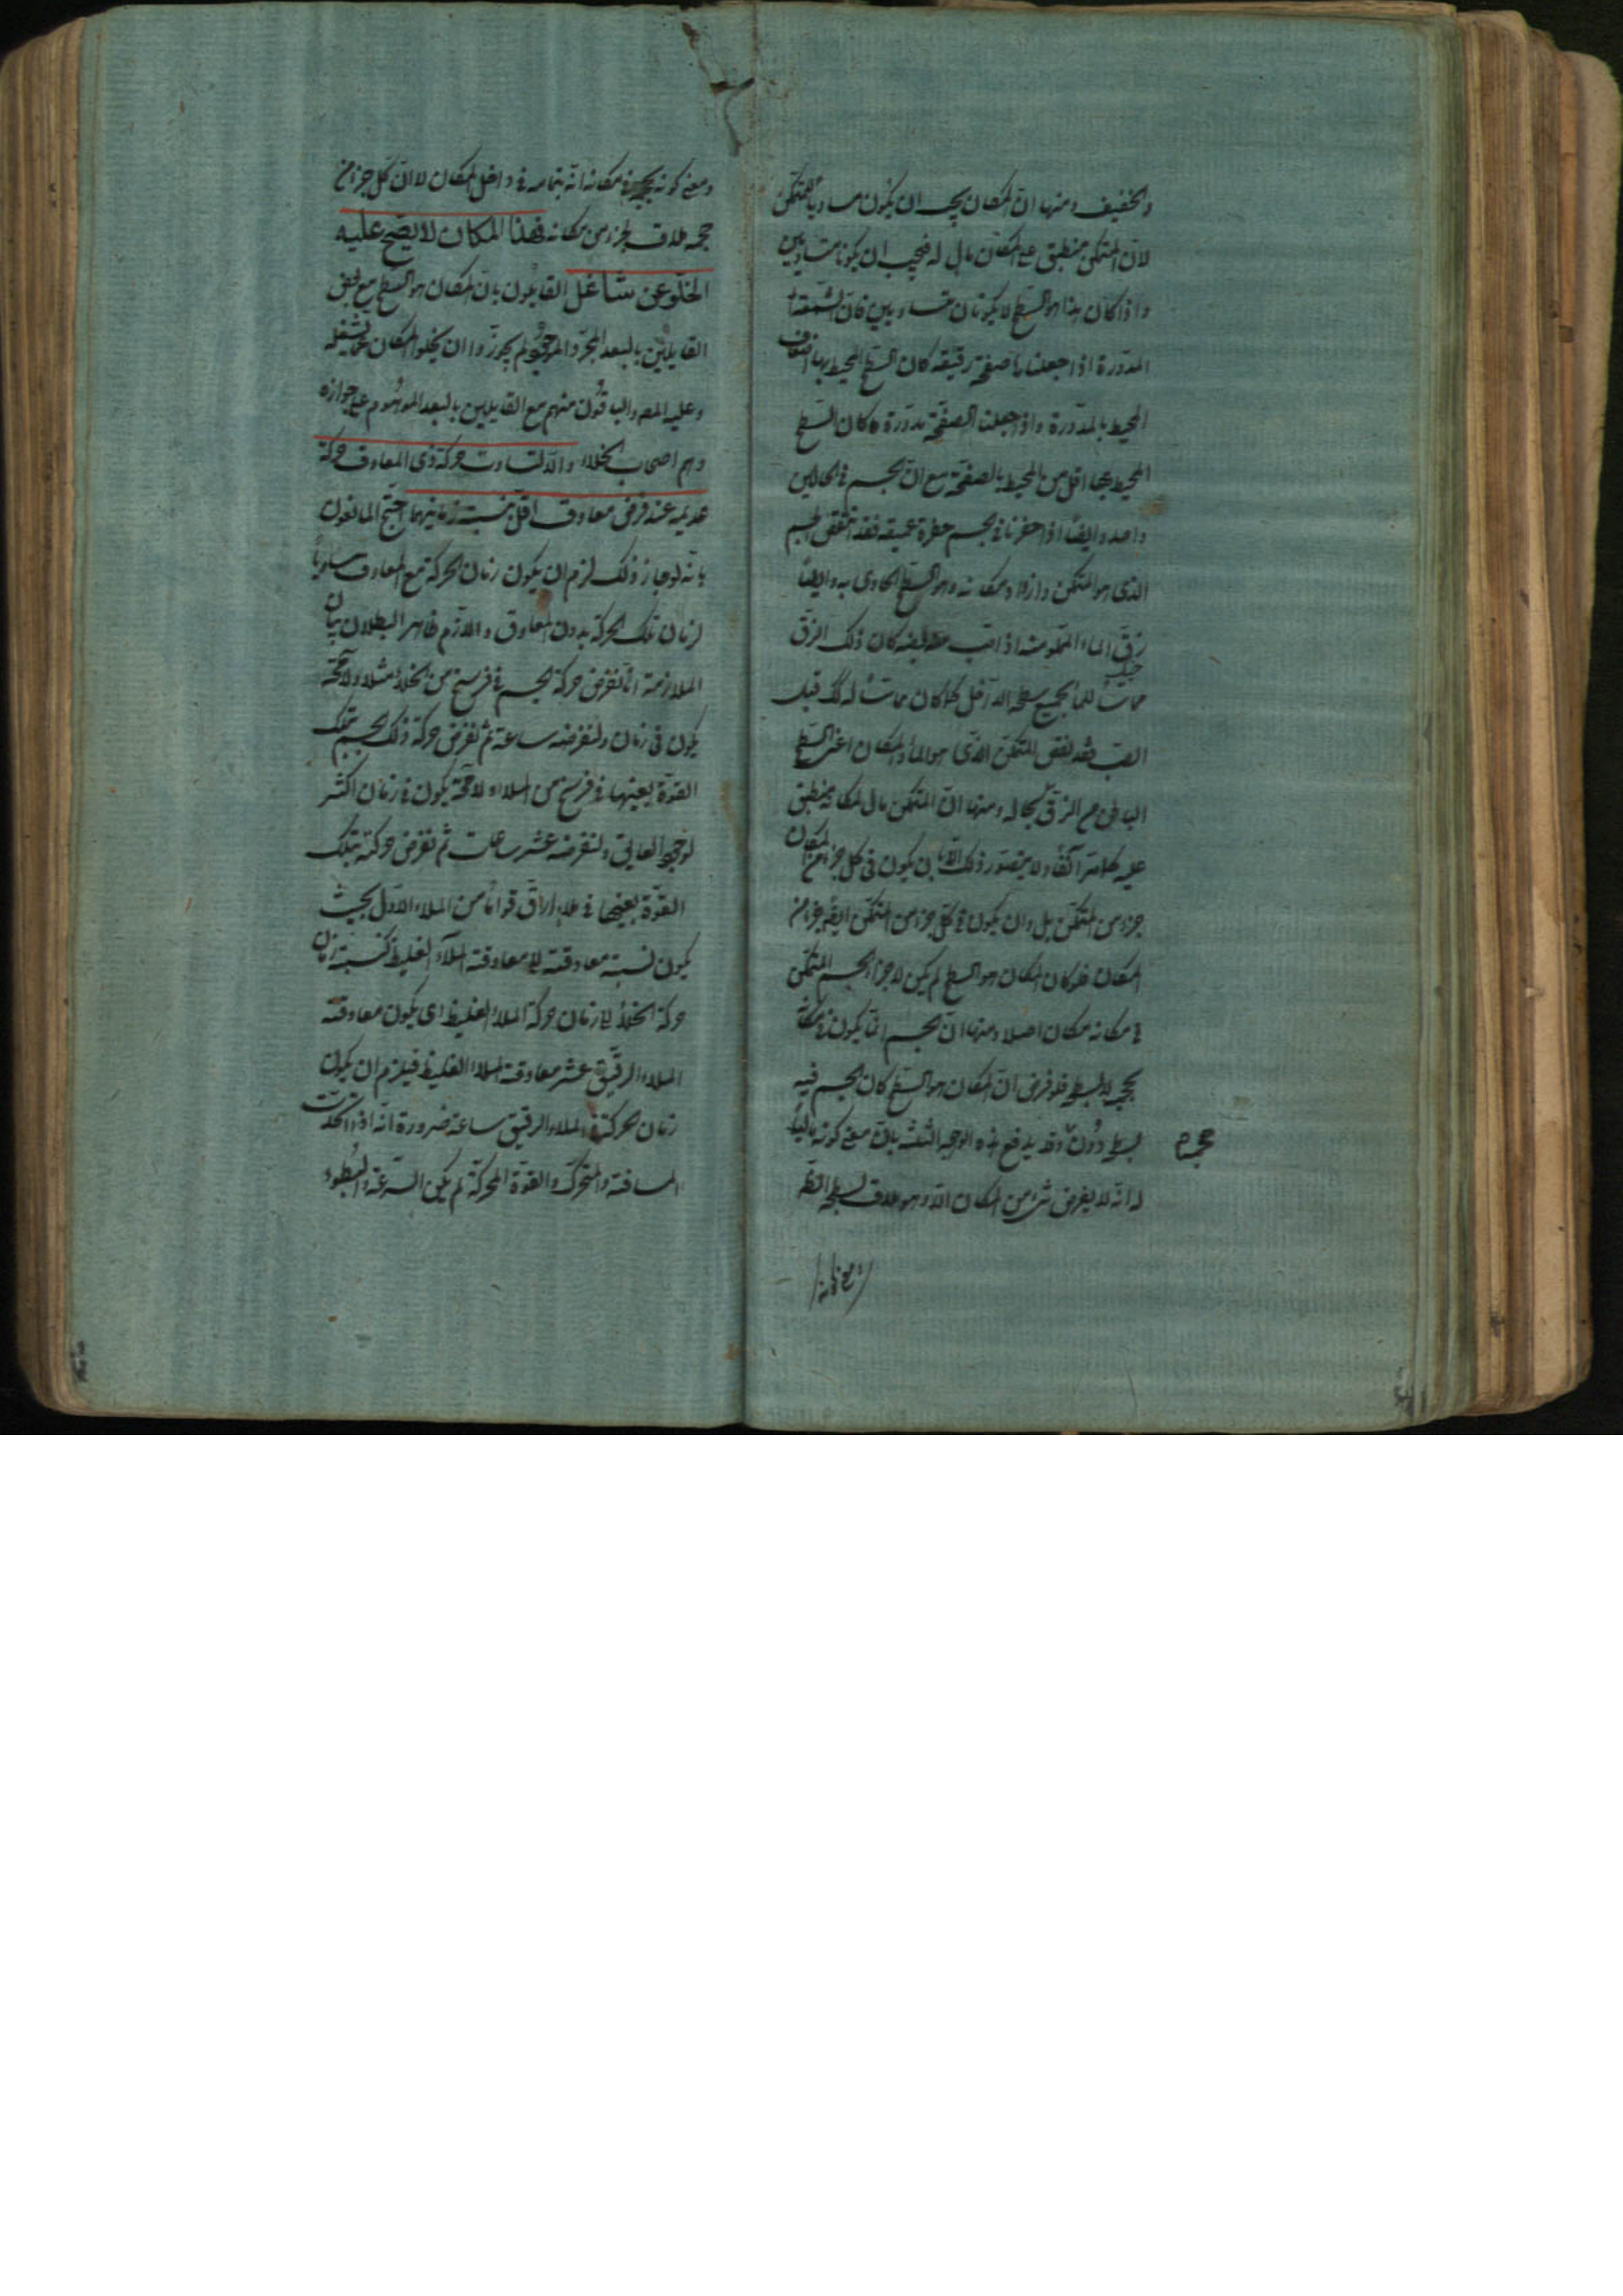 والخفيف ومنها ان المكان يجب ان يكون مساويا للمتمكن
لان المتمكن منطبق على المكان مال له فيجب ان يكونا متساويين
واذا كان هذا هو السطح لا يكونان متساويين فان الشمعة
المدورة اذا جعلناها صفحة رقيقة كان السطح المحيط بها اضعاف
المحيط بالمدورة واذا جعلنا الصفحة مدورة كان السطح
المحيط بها اقل من المحيط بالصفحة مع ان الجسم في الحالين
واحد وايضا اذا حفرنا في الجسم حفرة عميقة فقد انتقص الجسم
الذي هو المتمكن وازداد مكانه وهو السطح الحاوي به وايضا
زق الماء المملو منه اذا صب بعضه كان ذلك الزق
مماسا للماء بجميع سطحه الداخل كما كان مماسا له كذلك قبل
الصب فقد نقص المتمكن الذي هو الماء والمكان اعني السطح
الباطن من الزق بحاله ومنها ان المتمكن مال لمكانه منطبق
عليه كما مر آنفا ولا يتصور ذلك الا بان يكون في كل جزء من المكان
جزء من المتمكن بل وان يكون في كل جزء من المتمكن ايضا جزء من
المكان فلو كان المكان هو السطح لم يكن لاجزاء الجسم المتمكن
في مكانه مكان اصلا ومنها ان الجسم انما يكون في مكانه
بحجمه لا بسطحه فلو فرض ان المكان هو السطح كان الجسم فيه
بسطحه دون وقد يدفع هذه الوجوه الثلث بان معنى كونه ماليا
حجمه
له انه لا يفرض شيء من المكان الا وهو ملاق لسطحه الظ
ومعنى كونه
ومعنى كونه بحجمه في مكانه انه بتمامه في داخل المكان لا ان كل جزء من
حجمه ملاق لجزء من مكانه فهذا المكان لا يصح عليه
الخلو عن شاغل القايلون بان المكان هو السطح مع بعض
القايلين بالبعد المجرد الموجود لم يجوزوا ان يخلوا المكان عما يشغله
وعليه المص والباقون منهم مع القايلين بالبعد الموهوم على جوازه
وهم اصحاب الخلاء والا لتساوت حركة ذي المعاوق حركة
عديمه عند فرض معاوق اقل بنسبة زمانيهما احتج المانعون
بانه لو جاز ذلك لزم ان يكون زمان الحركة مع المعاوق مساويا
لزمان تلك الحركة بدون المعاوق واللازم ظاهر البطلان بيان
الملازمة انا نفرض حركة الجسم في فرسخ من الخلاء مثلا ولا محة
يكون في زمان ولنفرضه ساعة ثم نفرض حركة ذلك الجسم بتلك
القوة بعينها في فرسخ من الملاء ولا محة يكون في زمان اكثر
لوجود العايق ولنفرضه عشر ساعات ثم نفرض حركته بتلك
القوة بعينها في ملاء ارق قواما من الملاء الاول بحيث
يكون نسبة معاوقته الى معاوقة الملاء الغليظ كنسبة زمان
حركة الخلاء الى زمان حركة الملاء الغليظ اي يكون معاوقة
الملاء الرقيق عشر معاوقة الملاء الغليظ فيلزم ان يكون
زمان حركته في الملاء الرقيق ساعة ضرورة انه اذا اتحدت
المسافة والمتحرك والقوة المحركة لم يكن السرعة والبطوء